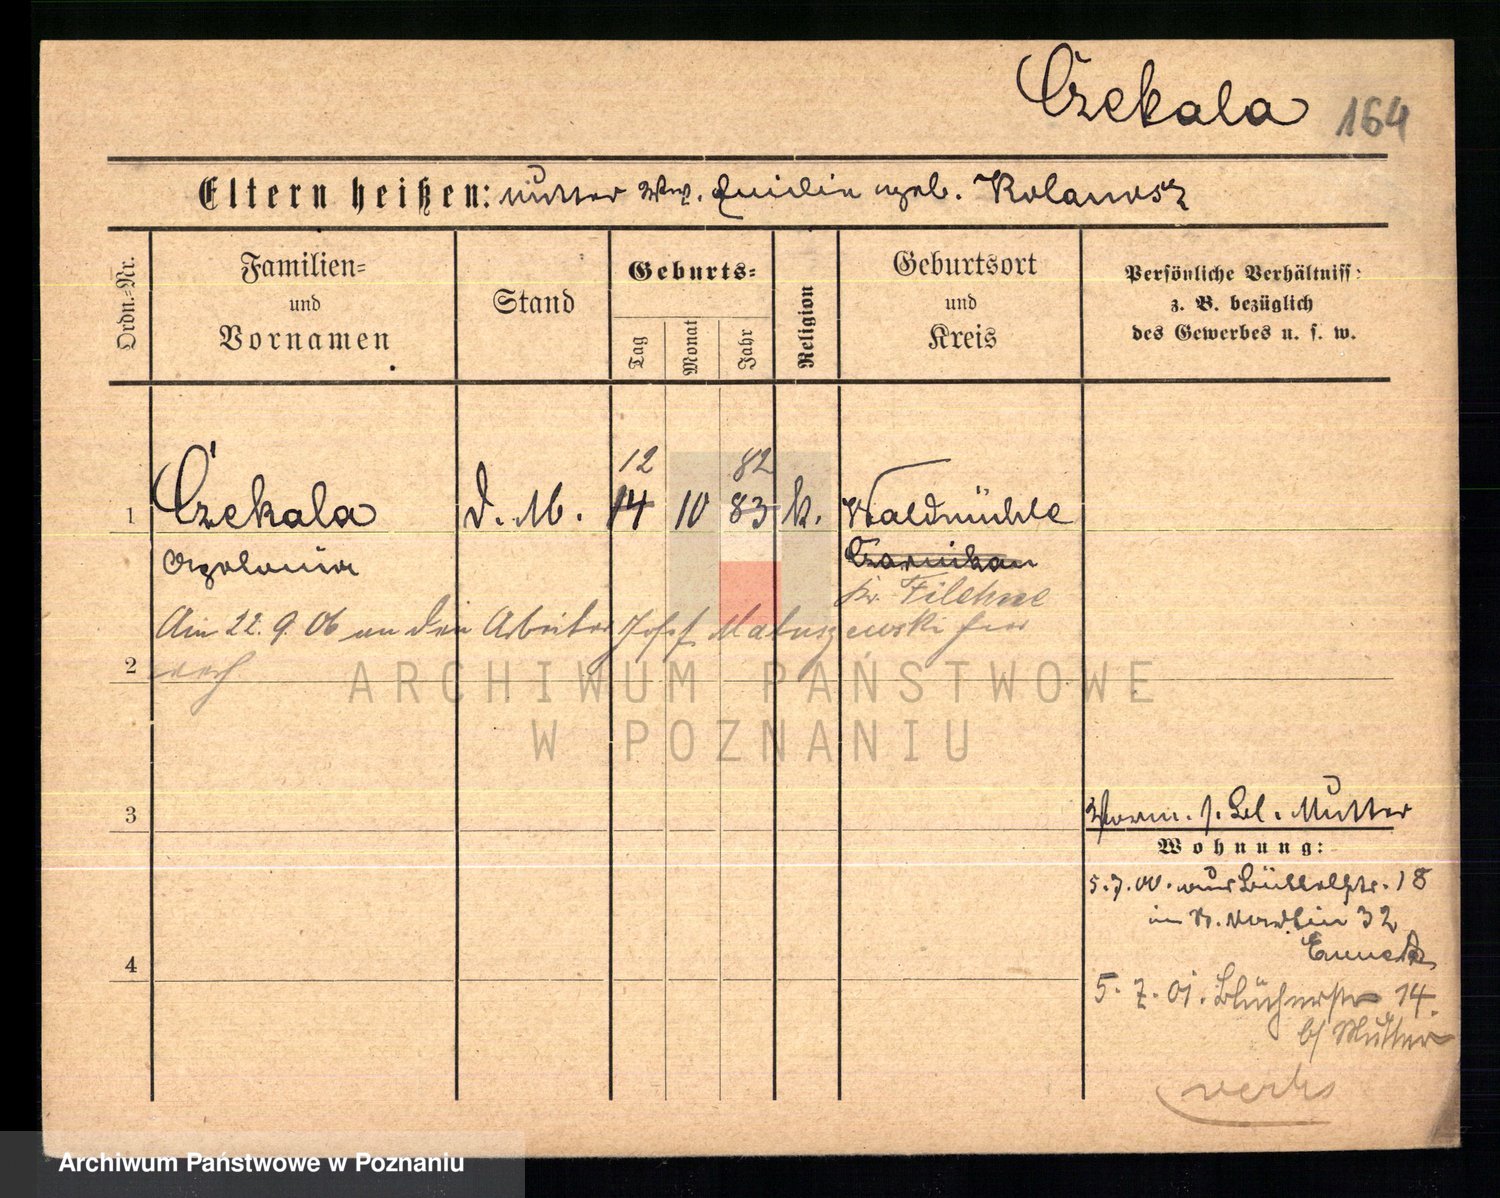 Czekala 164
Eltern heißen: Mutter Ww. Emilie geb. Kolanosz
Ordn.-Nr.
Familien-
und
Vornamen
Stand
Geburts-
Tag
Monat
Jahr
Religion
Geburtsort
und
Kreis
Persönliche Verhältniss:
z. B. bezüglich
des Gewerbes u. s. w.
12 82
1 Czekala d. M. 14 10 83 k. Waldmühle
Apolonia Czarnikau
Kr. Filehne
Am 22. 9. 06 an den Arbeiter Josef Matuszewski hier
2
ARCHIWUM PAŃSTWOWE
W POZNANIU
3
Vorm. s. Bl. Mutter
Wohnung:
5.7.00. 18
32
4
5. 7. 01. Blücherstr 14.
b/ Mutter
verh
Archiwum Państwowe w Poznaniu